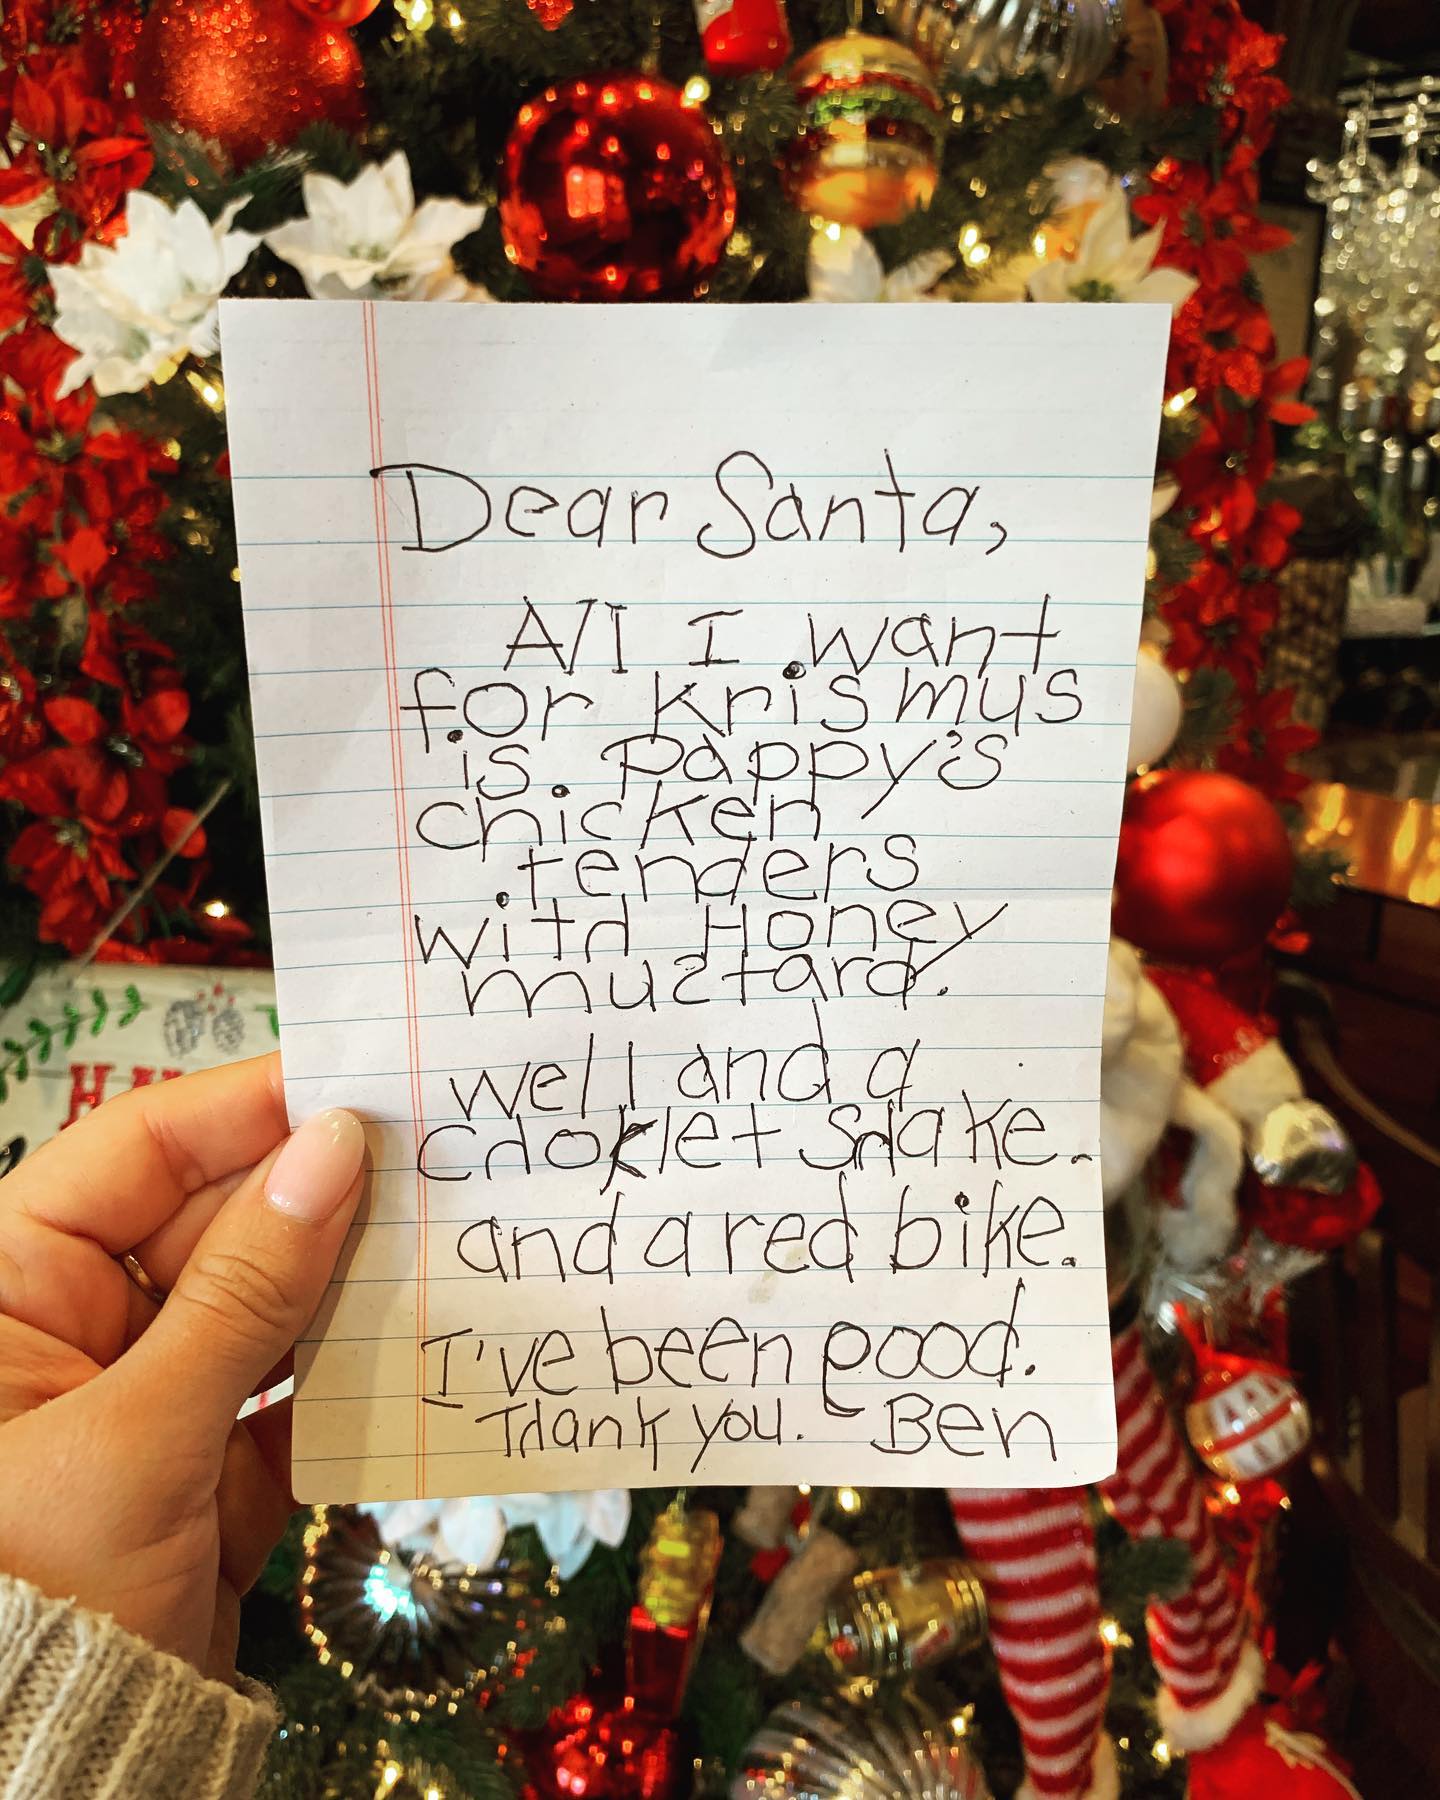 Dear Santa,
All I want
for krismus
is pappy's
chicken
tenders
with Honey
mustard.
well and a
choklet shake.
and a red bike.
I've been good.
Thank you. Ben